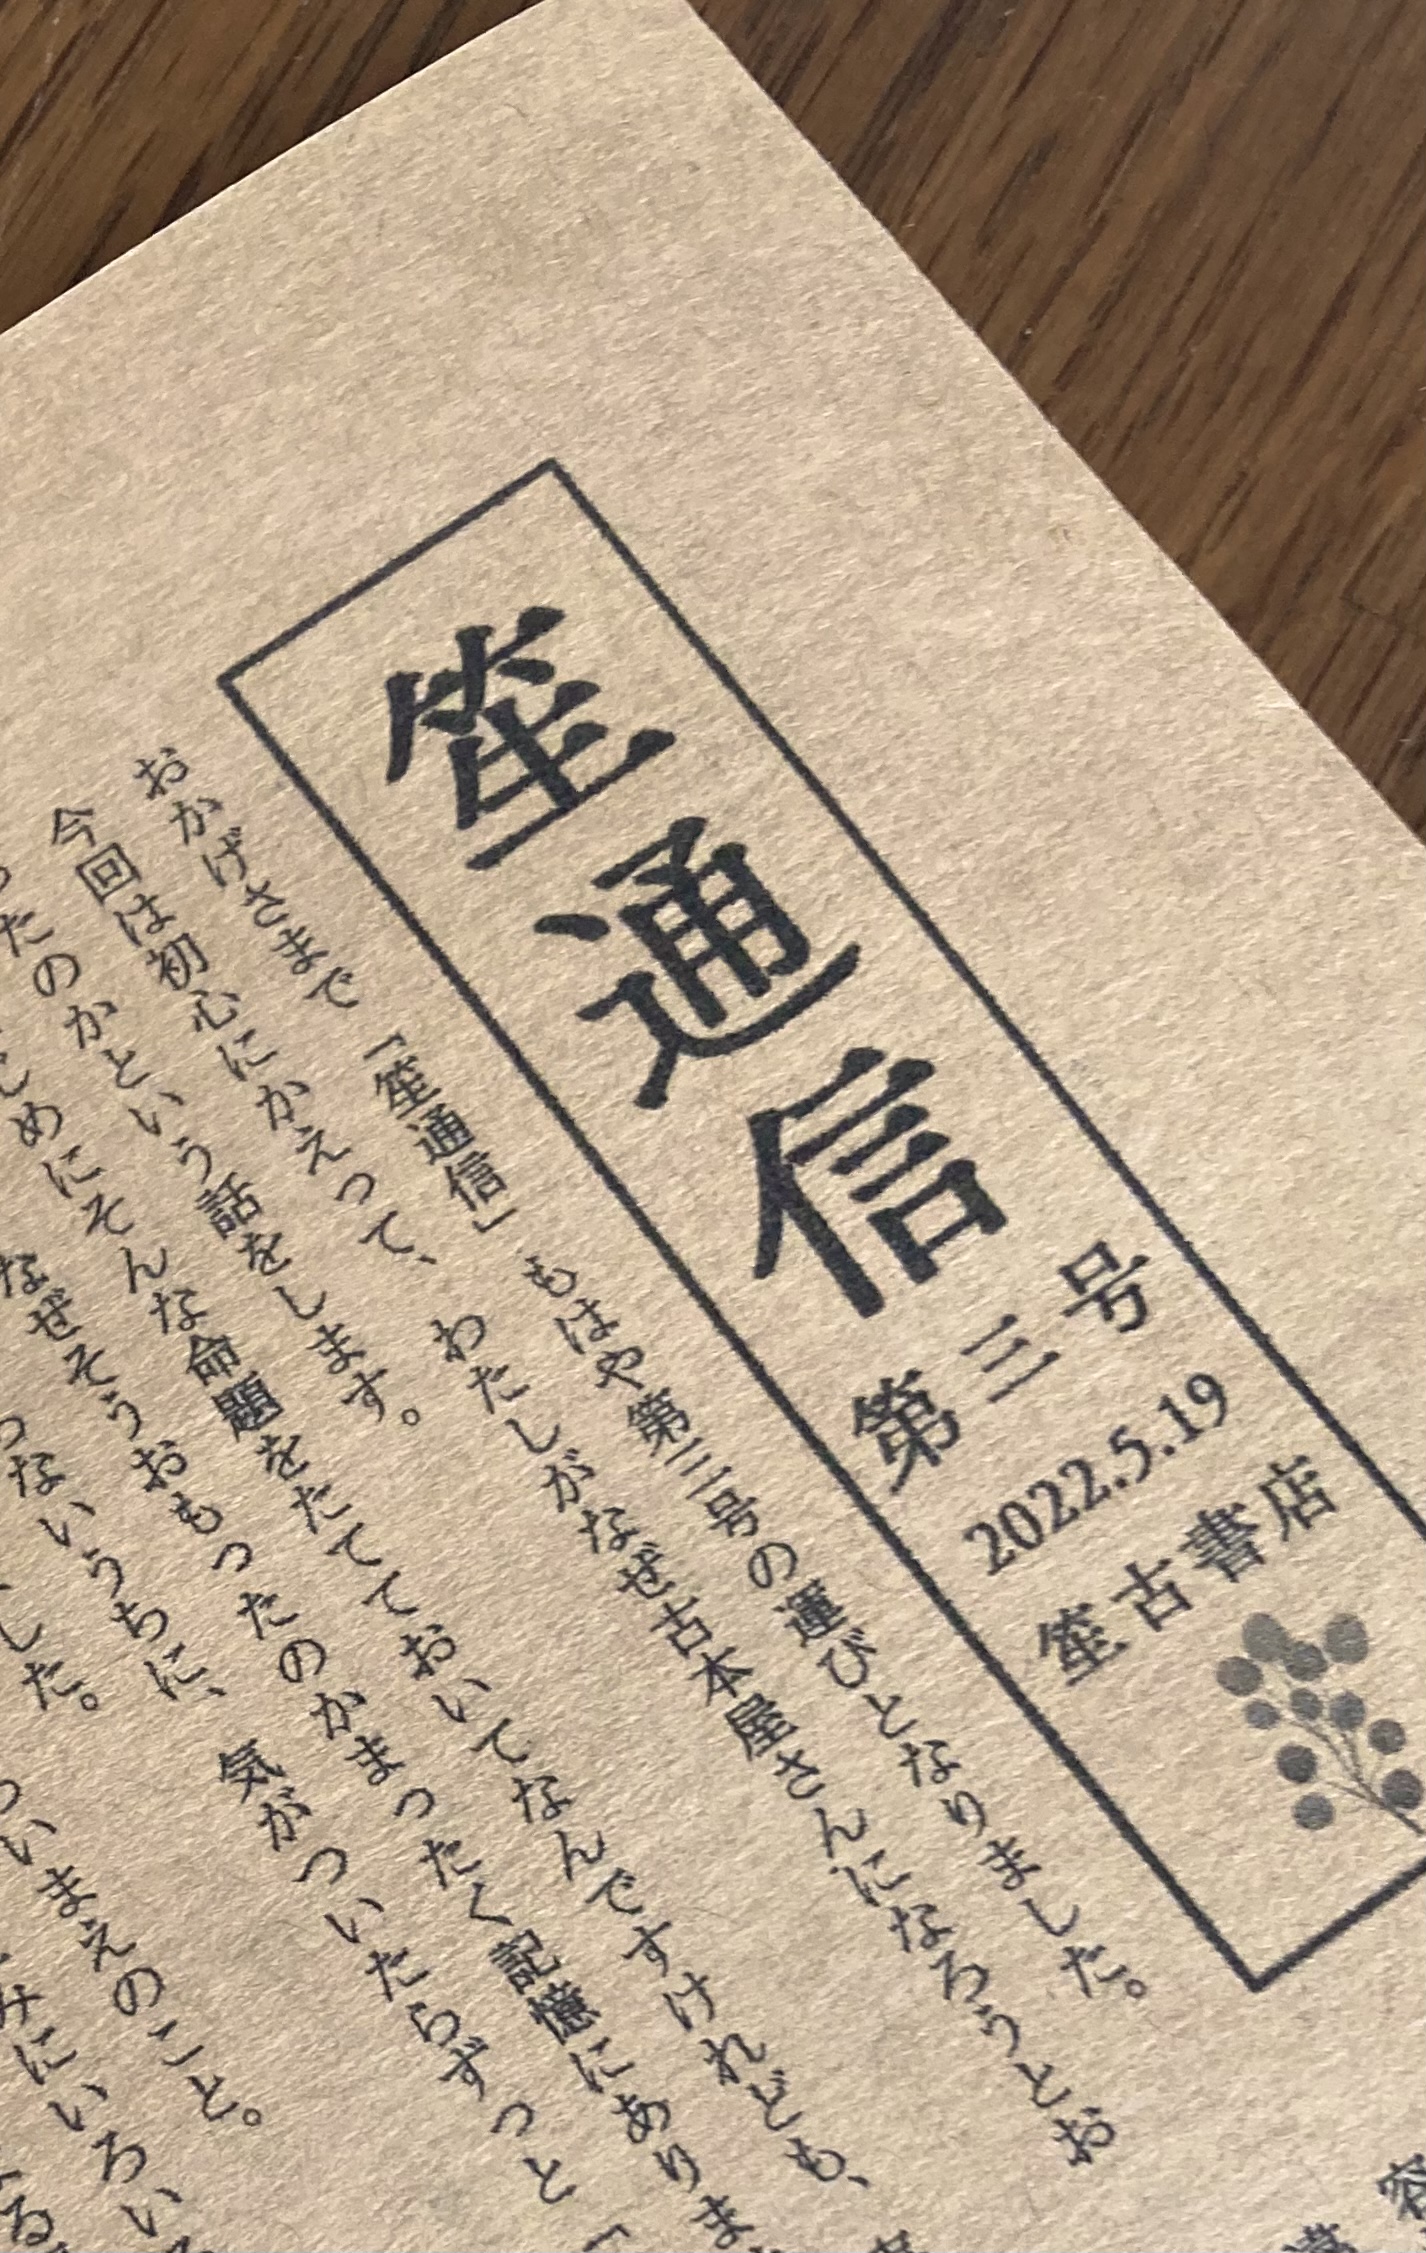 笙通信
第三号
2022.5.19
笙古書店
おかげさまで「笙通信」もはや第三号の運びとなりました。
今回は初心にかえって、わたしがなぜ古本屋さんになろうとお
ったのかという話をします。
じめにそんな命題をたてておいてなんですけれども、
なぜそうおもったのかまったく記憶にありま
ないうちに、気がついたらずっと「
した。
いまえのこと。
みにいろい